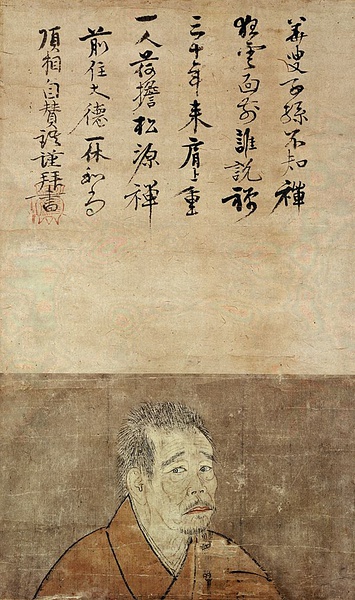 華叟子孫不知禪
狂雲面前誰説禪
三十年来肩上重
一人荷擔松源禪
前住大德一休和尚
頂相自賛 謹拜書